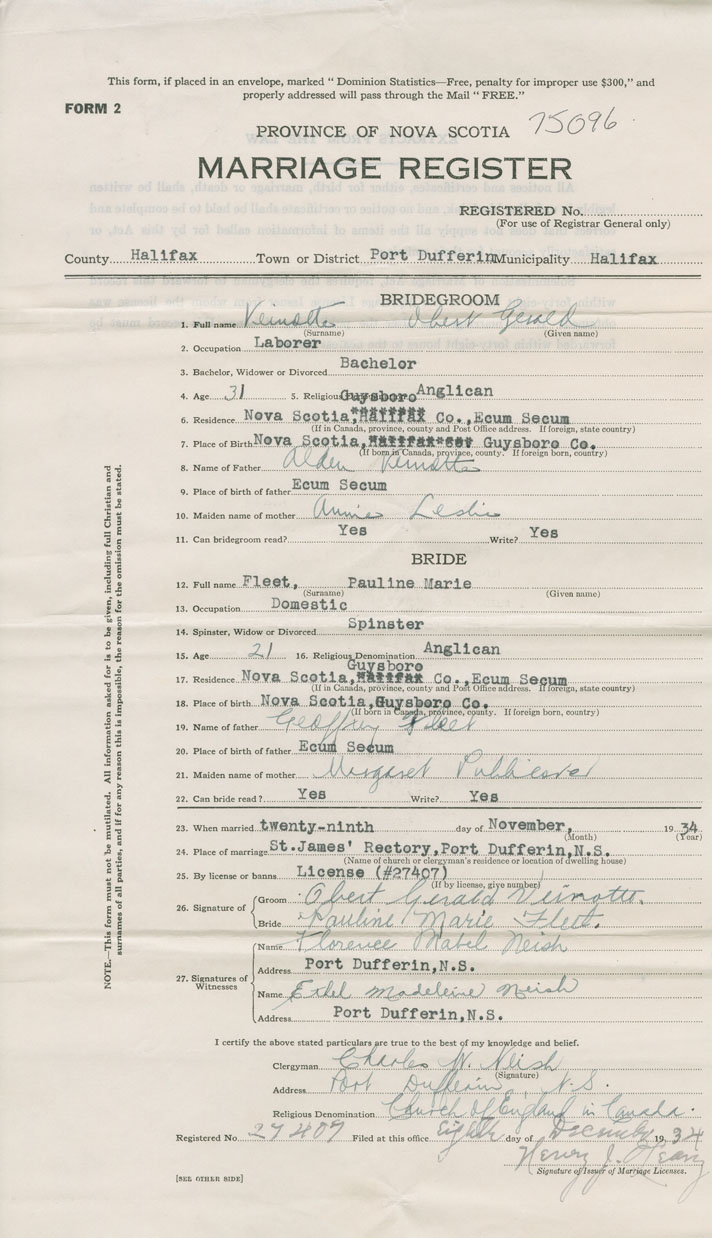 This form, if placed in an envelope, marked “ Dominion Statistics—Free, penalty for improper use $300,” and
properly addressed will pass through the Mail “ FREE.”
FORM 2
PROVINCE OF NOVA SCOTIA 75096
MARRIAGE REGISTER
REGISTERED No.
(For use of Registrar General only)
County Halifax Town or District Port Dufferin Municipality Halifax
BRIDEGROOM
1. Full name Veinotte Obert Gerald
(Surname) (Given name)
2. Occupation Laborer
3. Bachelor, Widower or Divorced Bachelor
4. Age 31 5. Religious Anglican
Guysboro
6. Residence Nova Scotia, Halifax Co.,Ecum Secum
(If in Canada, province, county and Post Office address. If foreign, state country)
7. Place of Birth Nova Scotia, Guysboro Co.
(If born in Canada, province, county. If foreign born, country)
8. Name of Father Alden Veinotte
9. Place of birth of father Ecum Secum
10. Maiden name of mother Annie Leslie
11. Can bridegroom read? Yes Write? Yes
BRIDE
12. Full name Fleet, Pauline Marie
(Surname) (Given name)
13. Occupation Domestic
14. Spinster, Widow or Divorced Spinster
15. Age 21 16. Religious Denomination Anglican
Guysboro
17. Residence Nova Scotia, Halifax Co.,Ecum Secum
(If in Canada, province, county and Post Office address. If foreign, state country)
18. Place of birth Nova Scotia, Guysboro Co.
(If born in Canada, province, county. If foreign born, country)
19. Name of father Geoffrey Fleet
20. Place of birth of father Ecum Secum
21. Maiden name of mother Margaret
22. Can bride read? Yes Write? Yes
23. When married twenty-ninth day of November, 1934
(Month) (Year)
24. Place of marriage St.James' Rectory,Port Dufferin,N.S.
(Name of church or clergyman's residence or location of dwelling house)
25. By license or banns License (#27407)
(If by license, give number)
26. Signature of Groom Obert Gerald Veinotte.
Bride Pauline Marie Fleet.
27. Signatures of Witnesses
Name Florence Mabel Neish
Address Port Dufferin,N.S.
Name Ethel Madeleine Neish
Address Port Dufferin,N.S.
I certify the above stated particulars are true to the best of my knowledge and belief.
Clergyman Charles W. Neish
(Signature)
Address Port Dufferin, N.S.
Religious Denomination Church of England in Canada.
Registered No 27407 Filed at this office eighth day of December 1934
Henry J.
Signature of Issuer of Marriage Licenses.
[SEE OTHER SIDE]
NOTE.—This form must not be mutilated. All information asked for is to be given, including full Christian and
surnames of all parties, and if for any reason this is impossible, the reason for the omission must be stated.